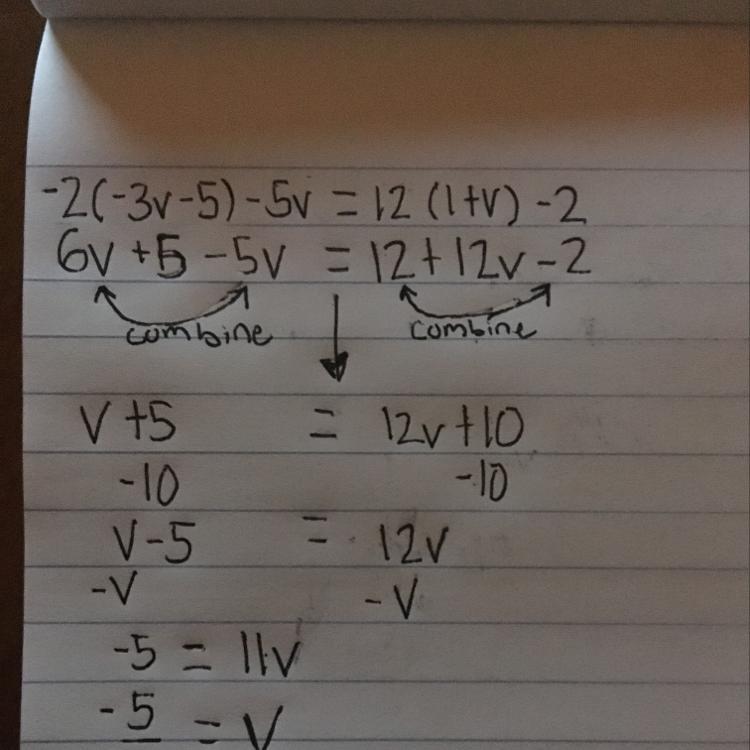 -2(-3v-5)-5v = 12(1+v)-2
6v+5-5v = 12+12v-2
combine combine
v+5 = 12v+10
-10 -10
v-5 = 12v
-v -v
-5 = 11v
-5 = v